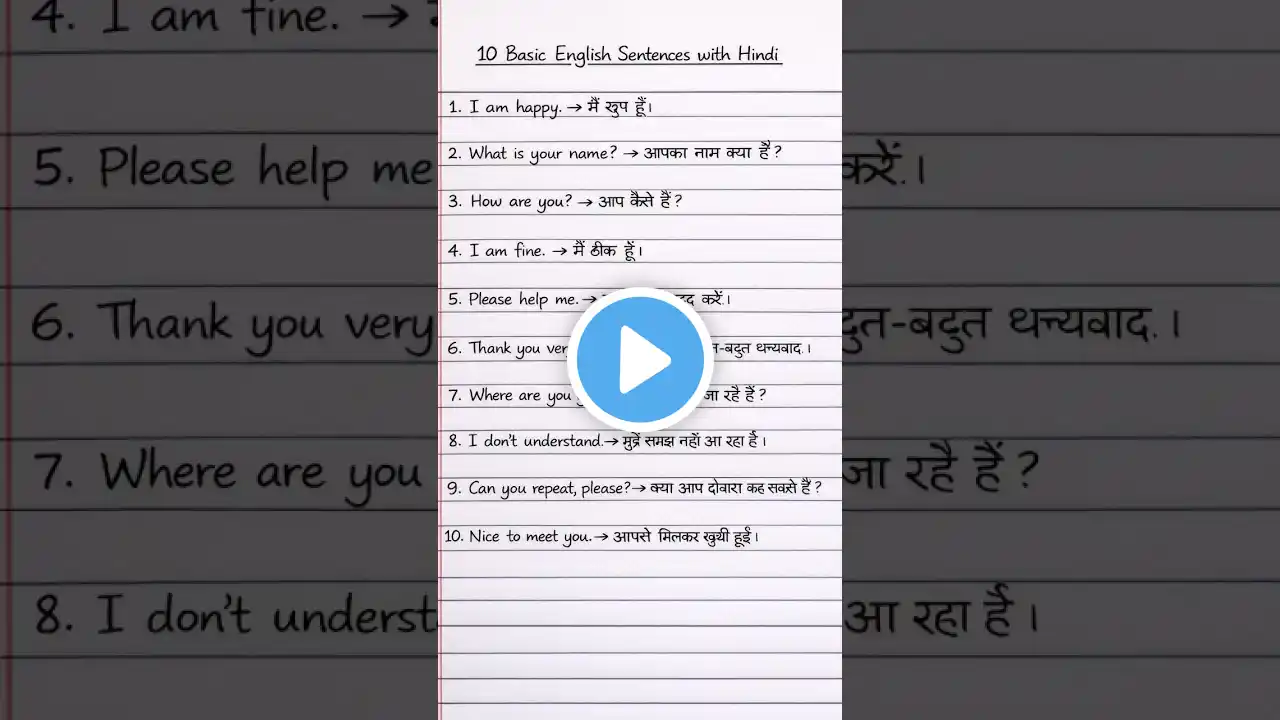 10 Basic English Sentences with Hindi
1. I am happy. → मैं खुप हूँ।
2. What is your name? → आपका नाम क्या है?
3. How are you? → आप कैसे हैं?
4. I am fine. → मैं ठीक हूँ।
5. Please help me. → करें.।
6. Thank you -बदुत थन्यवाद.।
7. Where are you जा रहै हैं?
8. I don't understand. → समझ नहीं आ रहा है।
9. Can you repeat, please? → क्या आप दोवारा कह सकसे हैं?
10. Nice to meet you. → आपसे मिलकर खुथी हूई।
4. I am fine. →
5. Please help me करें.।
6. Thank you very दुत-बदुत थन्यवाद.।
7. Where are you जा रहै हैं?
8. I don't underst आ रहा है।